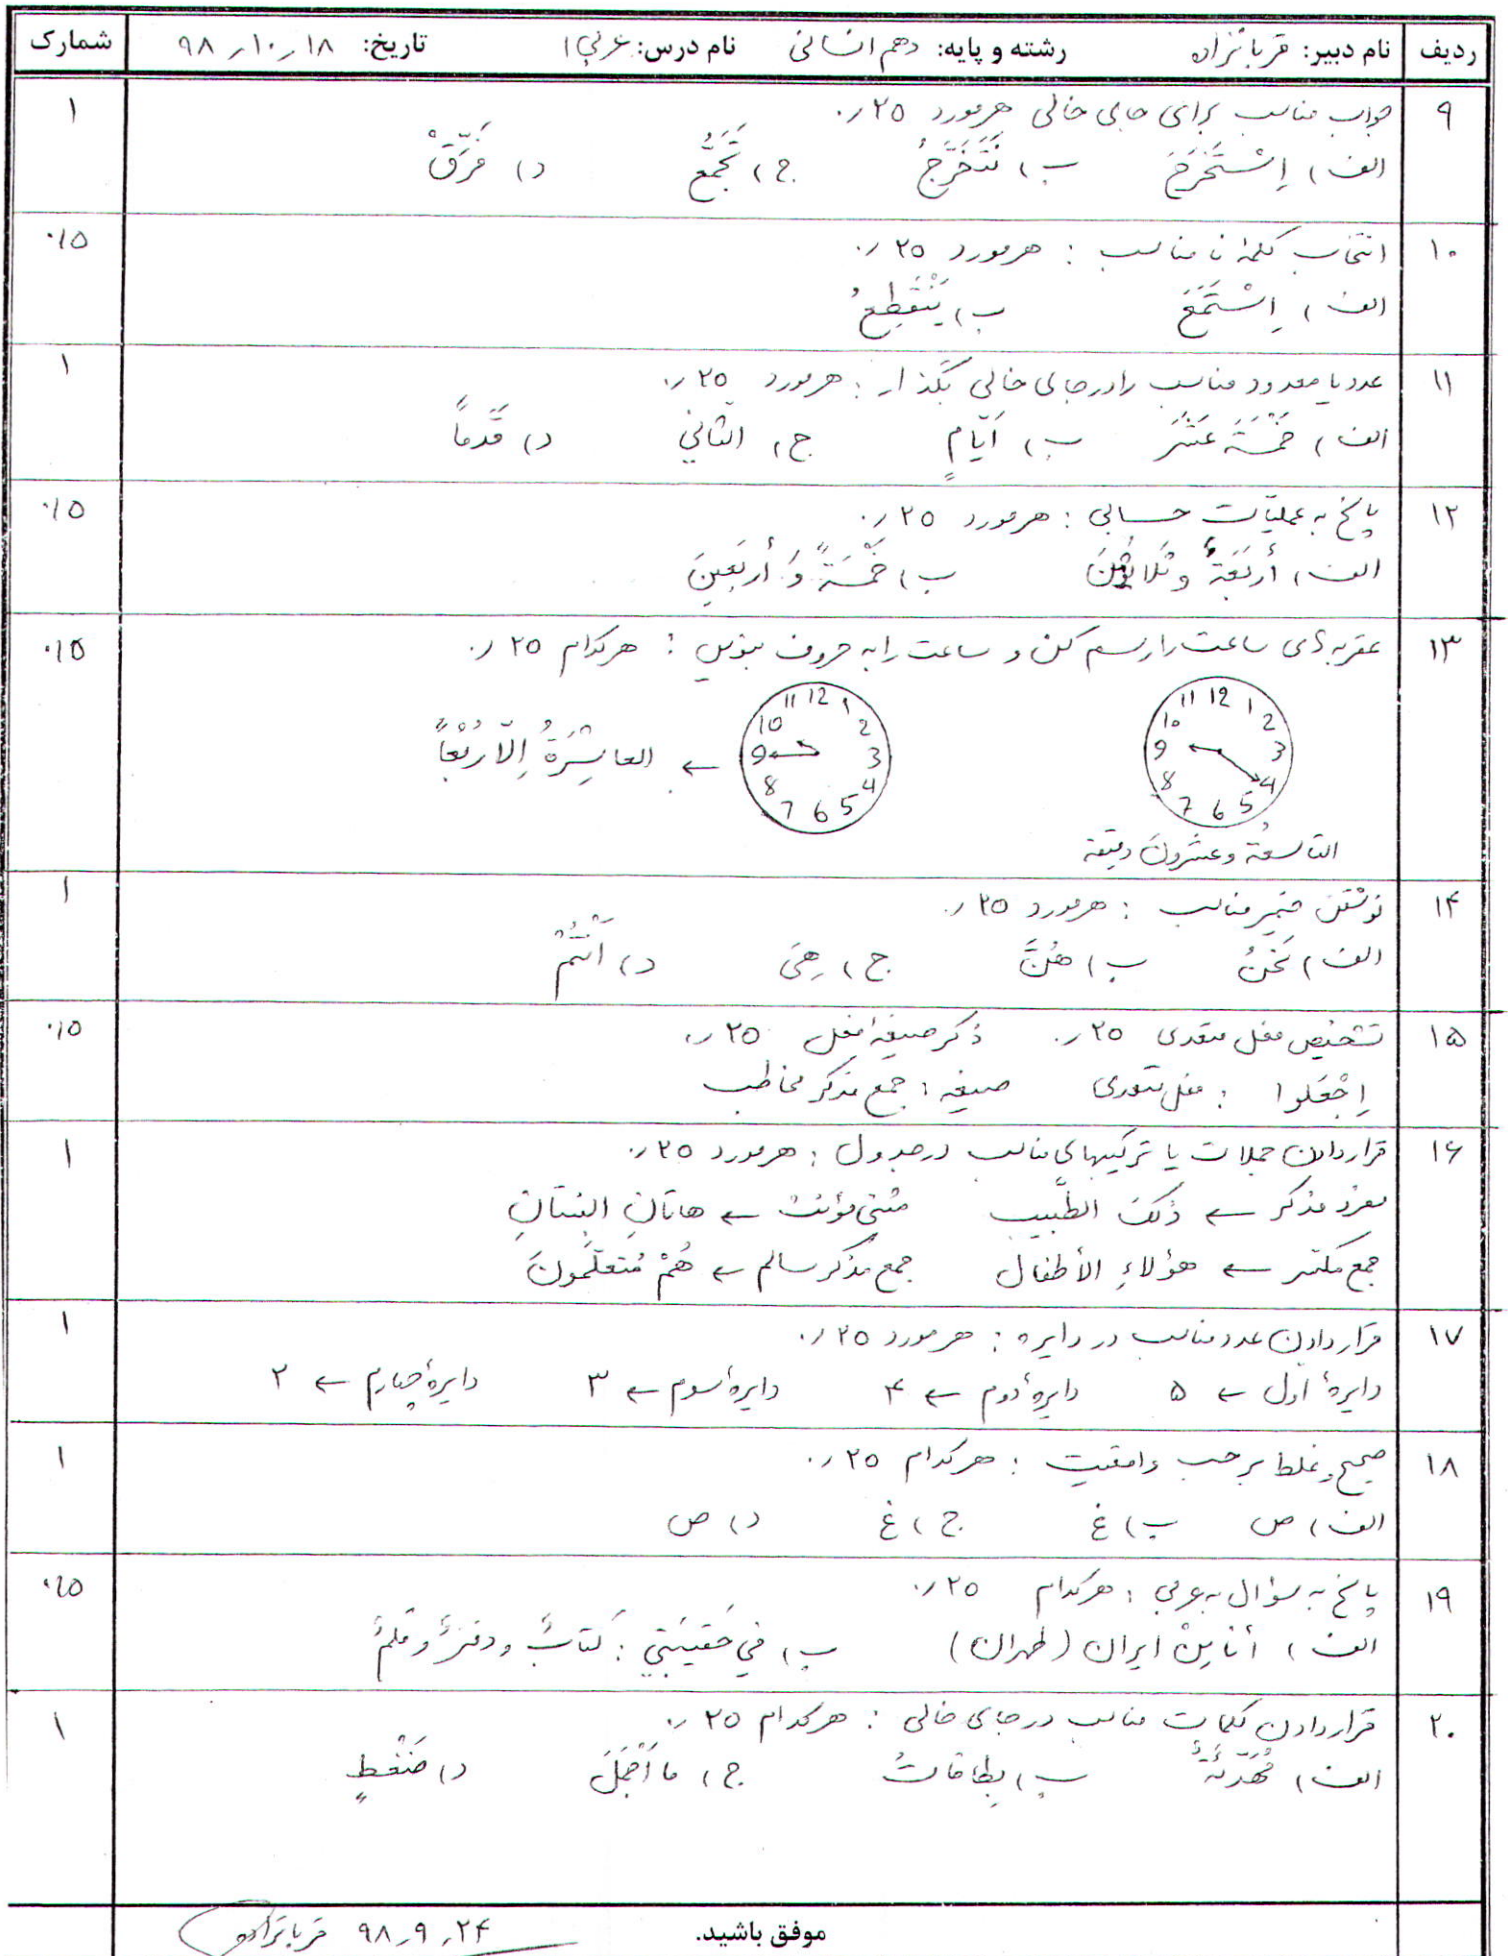 ردیف نام دبیر: قربانزاده رشته و پایه: دهم انسانی نام درس: عربی ۱ تاریخ: ۹۸٫۱۰٫۱۸ شمارک
۹ جواب مناسب برای جای خالی هر مورد ۰٫۲۵ ۱
الف) اِسْتَخْرَجَ ب) نَتَخَرَّجُ ج) تَجَمُّعُ د) فَرِّقْ
۱۰ انتخاب کلمهٔ نامناسب : هر مورد ۰٫۲۵ ۰٫۵
الف) اِسْتَمَعَ ب) یَنْقَطِعُ
۱۱ عدد یا معدود مناسب را در جای خالی بگذار : هر مورد ۰٫۲۵ ۱
الف) خَمْسَةَ عَشَرَ ب) اَیّامٍ ج) الثّاني د) قَدَماً
۱۲ پاسخ به عملیّات حسابی : هر مورد ۰٫۲۵ ۰٫۵
الف) أربَعَةً و ثَلاثینَ ب) خَمْسَةً وَ أربَعینَ
۱۳ عقربه‌ی ساعت را رسم کن و ساعت را به حروف بنویس : هر کدام ۰٫۲۵ ۰٫۵
11 12 1 10 2 9 3 8 4 7 6 5
11 12 1 10 2 9 3 8 4 7 6 5 ← العاشِرَةُ اِلّا رُبْعاً
التاسعةُ و عشرونَ دقیقة
۱۴ نوشتن ضمیر مناسب : هر مورد ۰٫۲۵ ۱
الف) نَحْنُ ب) هُنَّ ج) هِيَ د) اَنْتُمْ
۱۵ تشخیص فعل متعدی ۰٫۲۵ ذکر صیغهٔ فعل ۰٫۲۵ ۰٫۵
اِجْعَلوا : فعل متعدی صیغه : جمع مذکر مخاطب
۱۶ قرار دادن جملات یا ترکیبهای مناسب در جدول : هر مورد ۰٫۲۵ ۱
مفرد مذکر ← ذٰلکَ الطَّبیب مثنی مؤنث ← هاتانِ البِنتانِ
جمع مکسّر ← هؤلاءِ الأطفال جمع مذکر سالم ← هُمْ مُتعلّمونَ
۱۷ قرار دادن عدد مناسب در دایره : هر مورد ۰٫۲۵ ۱
دایرهٔ اول ← ۵ دایرهٔ دوم ← ۴ دایرهٔ سوم ← ۳ دایرهٔ چهارم ← ۲
۱۸ صحیح و غلط برحسب واقعیت : هر کدام ۰٫۲۵ ۱
الف) ص ب) غ ج) غ د) ص
۱۹ پاسخ به سؤال به عربی : هر کدام ۰٫۲۵ ۰٫۵
الف) أنا مِنْ ایران (طهران) ب) في حَقیبَتي : کتابٌ و دفترٌ و قلمٌ
۲۰ قرار دادن کلمات مناسب در جای خالی : هر کدام ۰٫۲۵ ۱
الف) مُهَدِّئَةٌ ب) بِطاقاتُ ج) ما اَجْمَلَ د) ضَغْطٍ
موفق باشید. ۹۸٫۹٫۲۴ قربانزاده